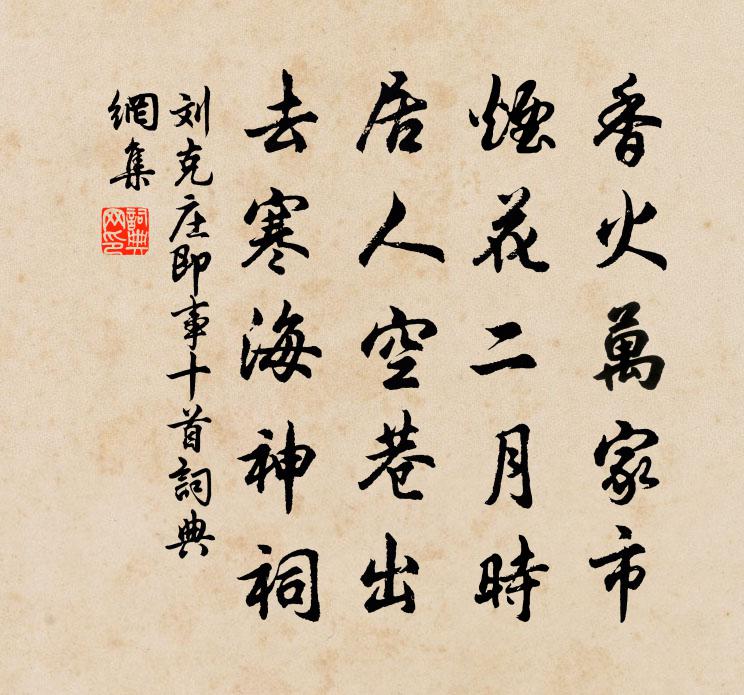 香火萬家市
煙花二月時
居人空巷出
去寒海神祠
刘克庄即事十首詞典
網集
詞典
网印